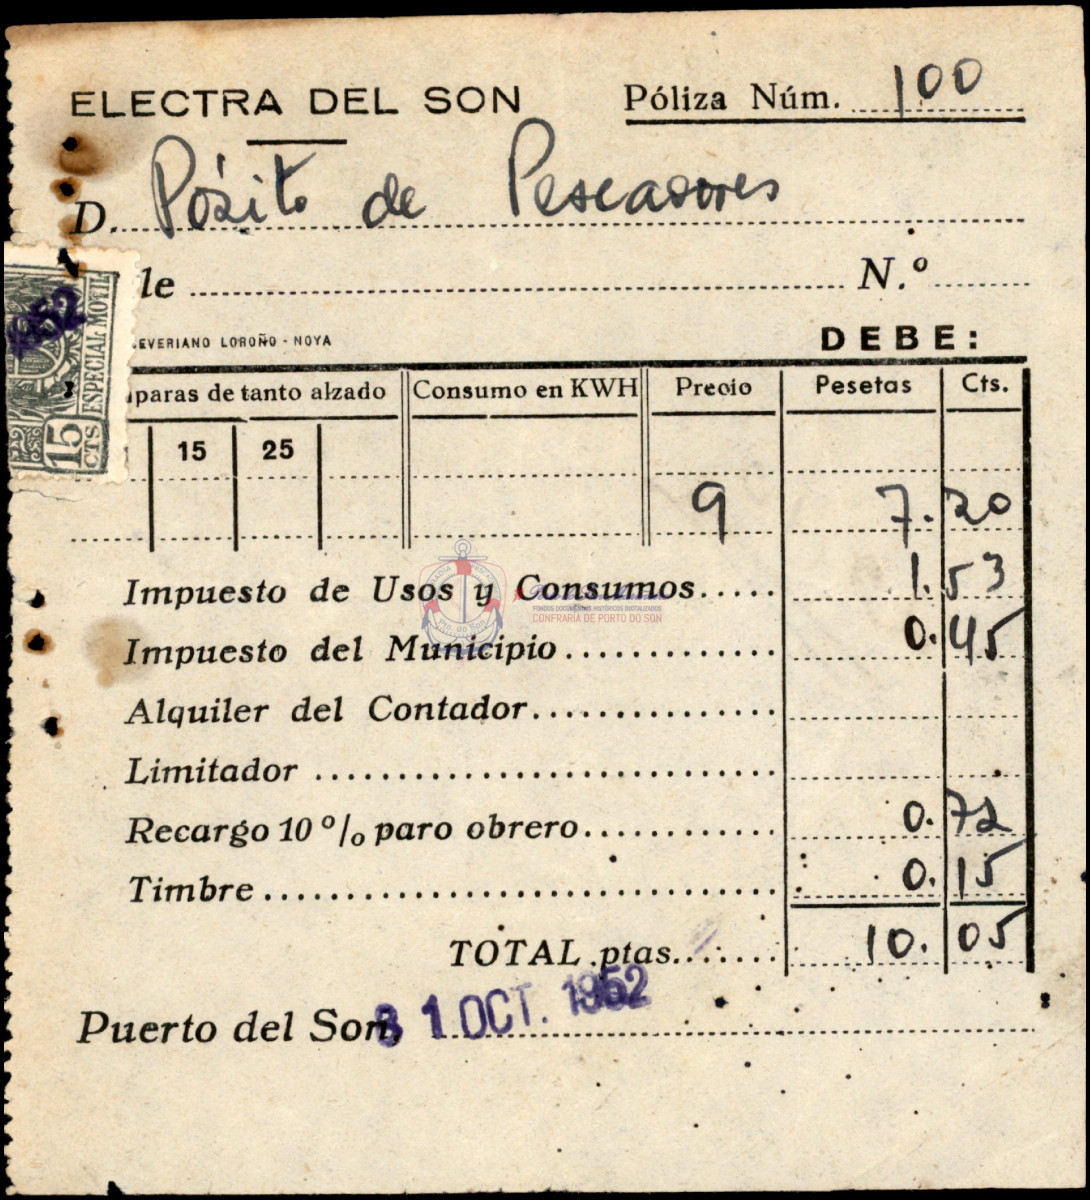 ELECTRA DEL SON
Póliza Núm. 100
D. Pósito de Pescadores
le N.º
EVERIANO LOROÑO - NOYA
DEBE:
1952
15 CTS ESPECIAL MOVIL
paras de tanto alzado Consumo en KWH Precio Pesetas Cts.
15 25
9 7.20
Impuesto de Usos y Consumos..... 1.53
FONDOS DOCUMENTAIS HISTÓRICOS DIXITALIZADOS
CONFRARÍA DE PORTO DO SON
Impuesto del Municipio............. 0.45
Alquiler del Contador...............
Limitador ............................
Recargo 10 º/o paro obrero............ 0.72
Timbre ............................... 0.15
TOTAL ptas........ 10.05
Puerto del Son, 31 OCT. 1952